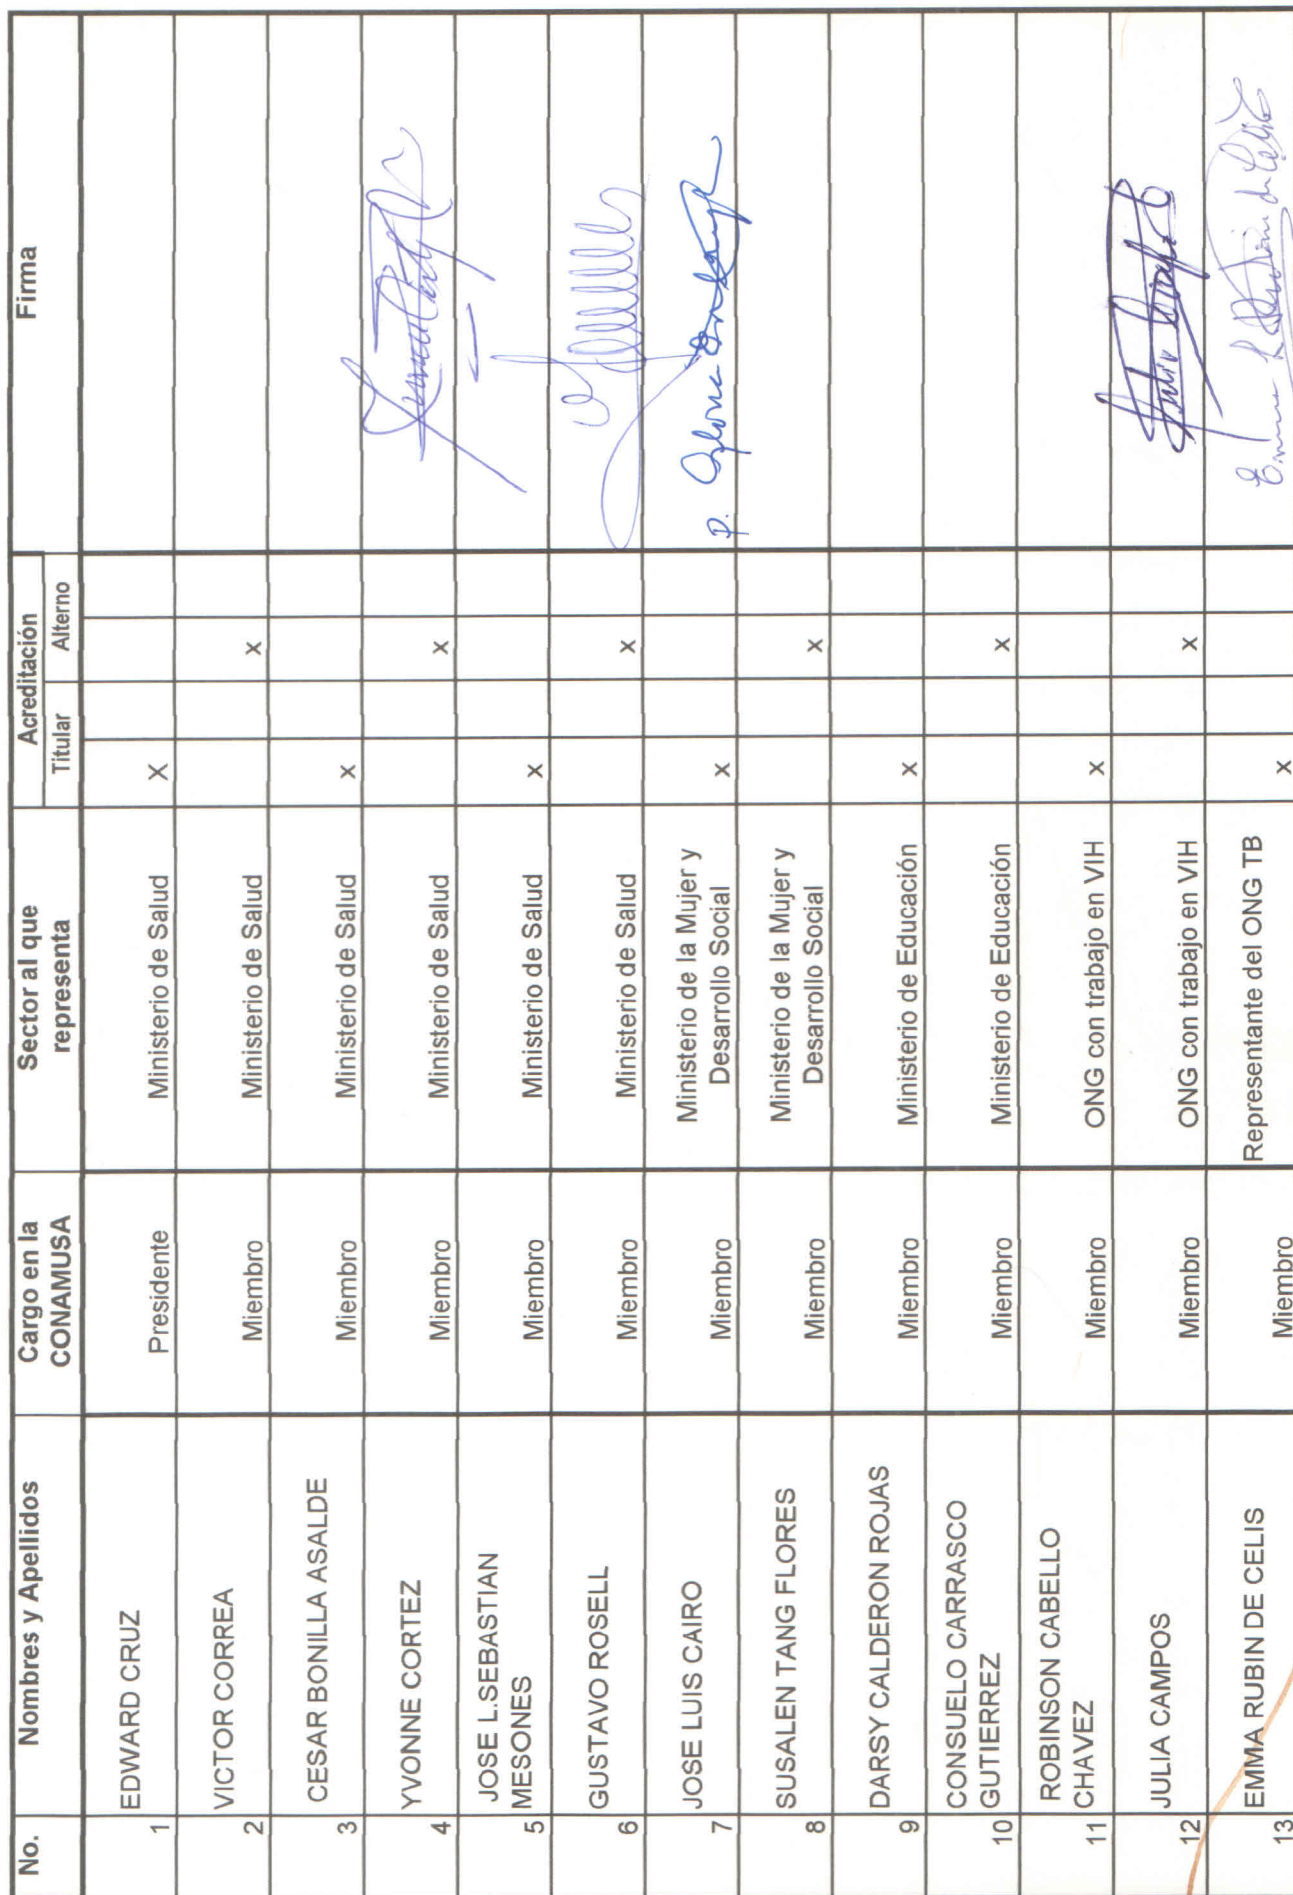 No. Nombres y Apellidos Cargo en la CONAMUSA Sector al que representa Acreditación Firma
Titular Alterno
1 EDWARD CRUZ Presidente Ministerio de Salud X
2 VICTOR CORREA Miembro Ministerio de Salud x
3 CESAR BONILLA ASALDE Miembro Ministerio de Salud x
4 YVONNE CORTEZ Miembro Ministerio de Salud x
5 JOSE L.SEBASTIAN MESONES Miembro Ministerio de Salud x
6 GUSTAVO ROSELL Miembro Ministerio de Salud x
7 JOSE LUIS CAIRO Miembro Ministerio de la Mujer y Desarrollo Social x p. Gloria
8 SUSALEN TANG FLORES Miembro Ministerio de la Mujer y Desarrollo Social x
9 DARSY CALDERON ROJAS Miembro Ministerio de Educación x
10 CONSUELO CARRASCO GUTIERREZ Miembro Ministerio de Educación x
11 ROBINSON CABELLO CHAVEZ Miembro ONG con trabajo en VIH x
12 JULIA CAMPOS Miembro ONG con trabajo en VIH x
13 EMMA RUBIN DE CELIS Miembro Representante del ONG TB x Emma Rubín de Celis